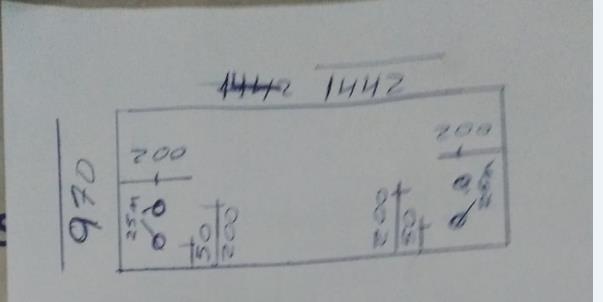 1442 1442
200
200
970
25m
50
200
200
50
25m